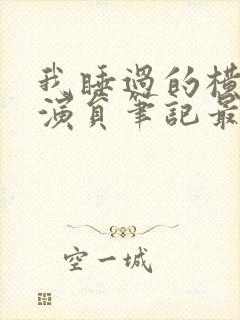 我睡過的橫
演員筆記最
空一城